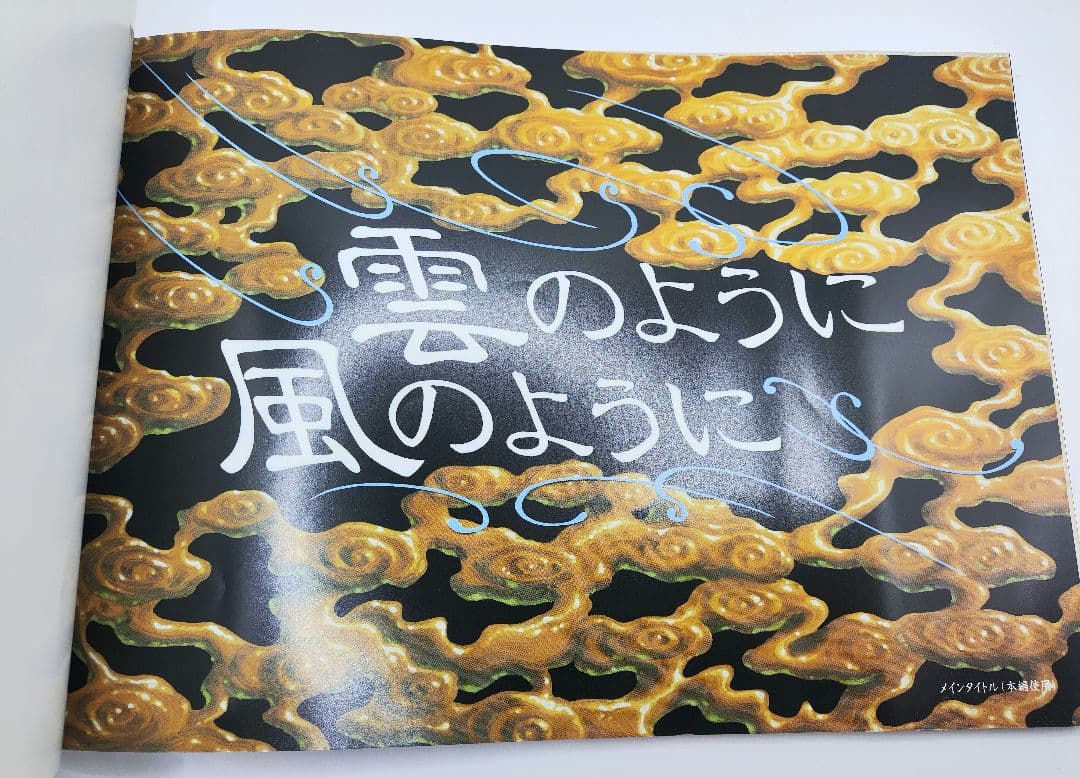 雲のように
風のように
メインタイトル(本編使用)